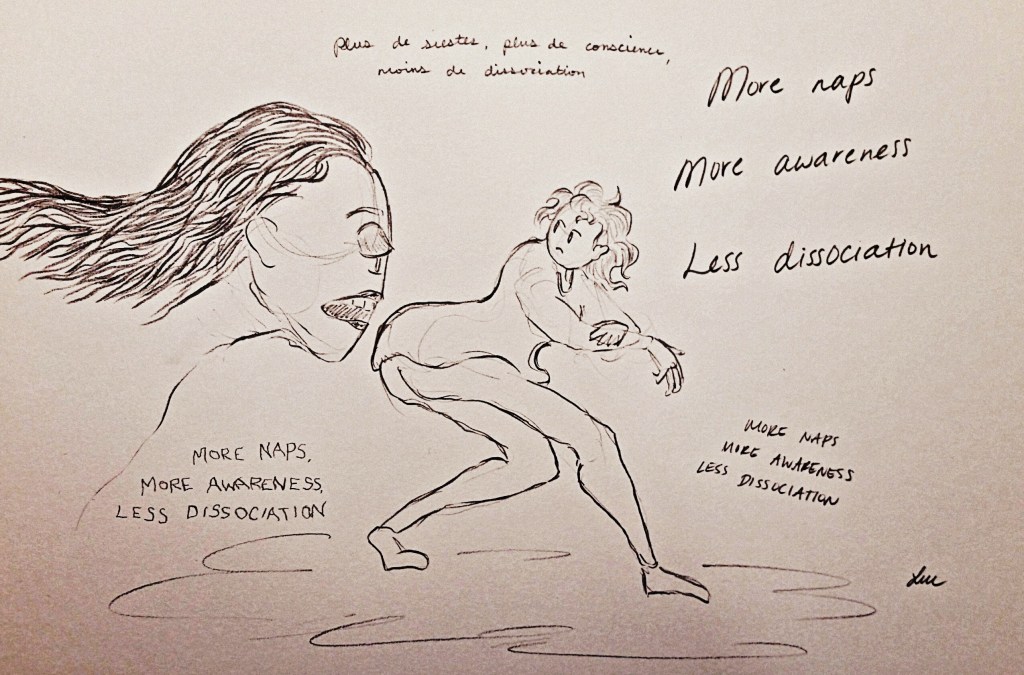 plus de siestes, plus de conscience,
moins de dissociation
More naps
More awareness
Less dissociation
MORE NAPS,
MORE AWARENESS,
LESS DISSOCIATION
MORE NAPS
MORE AWARENESS
LESS DISSOCIATION